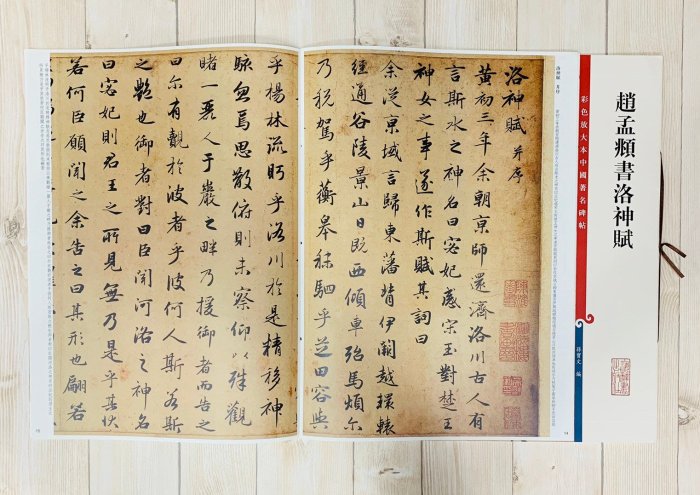 趙孟頫書洛神賦
彩色放大本中國著名碑帖
孫寶文 編
洛神賦 并序
黃初三年余朝京師還濟洛川古人有
言斯水之神名曰宓妃感宋玉對楚王
神女之事遂作斯賦其詞曰
余從京域言歸東藩背伊闕越轘轅
經通谷陵景山日既西傾車殆馬煩尓
乃稅駕乎蘅皋秣駟乎芝田容與
乎楊林流眄乎洛川於是精移神
駭忽焉思散俯則未察仰以殊觀
睹一麗人于巖之畔乃援御者而告之
曰尓有覿於彼者乎彼何人斯若斯
之艷也御者對曰臣聞河洛之神名
曰宓妃則君王之所見無乃是乎其狀
若何臣願聞之余告之曰其形也翩若